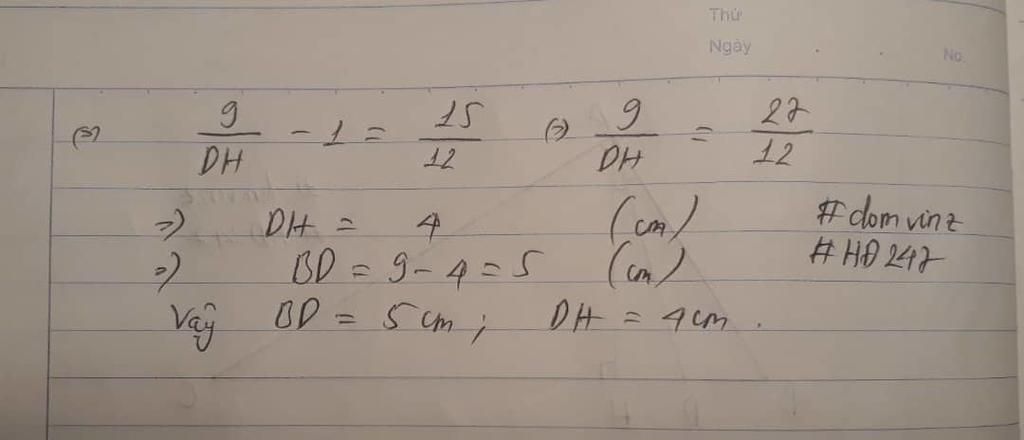 Thứ
Ngày . . No.
(=) 9/DH - 1 = 15/12 (=) 9/DH = 27/12
=) DH = 4 (cm) #domvinz
=) BD = 9 - 4 = 5 (cm) #HĐ247
Vậy BD = 5cm; DH = 4cm.